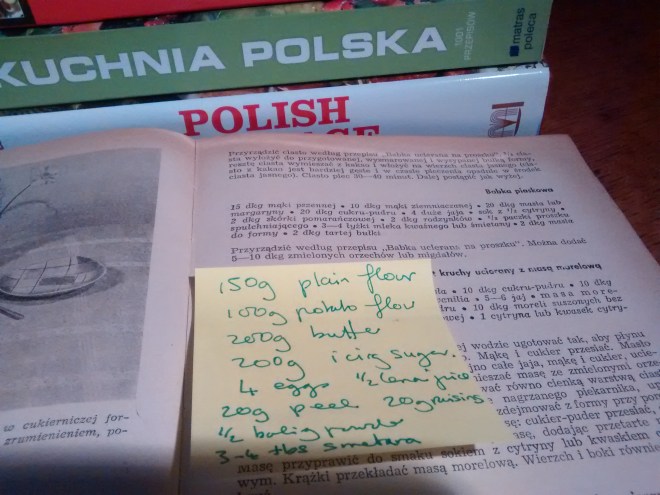 KUCHNIA POLSKA
1001 PRZEPISÓW
matras
poleca
POLISH
Przyrządzić ciasto według przepisu „Babka ucierana na proszku". ¾ cia-
sta wyłożyć do przygotowanej, wysmarowanej i wysypanej bułką formy,
resztę ciasta wymieszać z kakao i włożyć na wierzch ciasta jasnego (cias-
to z kakao jest bardziej gęste i w czasie pieczenia opadnie w środek
ciasta jasnego). Ciasto piec 30—40 minut. Dalej postąpić jak wyżej.
Babka piaskowa
15 dkg mąki pszennej • 10 dkg mąki ziemniaczanej • 20 dkg masła lub
margaryny • 20 dkg cukru-pudru • 4 duże jaja • sok z ½ cytryny •
2 dkg skórki pomarańczowej • 2 dkg rodzynków • ½ paczki proszku
spulchniającego • 3—4 łyżki mleka kwaśnego lub śmietany • 2 dkg masła
do formy • 2 dkg tartej bułki.
Przyrządzić według przepisu „Babka ucierana na proszku". Można dodać
5—10 dkg zmielonych orzechów lub migdałów.
kruchy ucierany z masą morelową
dkg cukru-pudru • 10 dkg
5—6 jaj • masa more-
10 dkg moreli suszonych bez
• 1 cytryna lub kwasek cytry-
150g plain flour
100g potato flour
200g butter
200g icing sugar.
4 eggs ½ lemon juice
20g peel 20g raisins
½ baking powder
3-4 tbs smetana
wodzie ugotować tak, aby płynu
Mąkę i cukier przesiać. Masło
całe jaja, mąkę i cukier, ucie-
mieszać masę ze zmielonymi orze-
równo cienką warstwą cias
nagrzanego piekarnika, up
zdejmować z formy przy pom
cukier-puder przesiać,
dodając przetarte m
masę przyprawić do smaku sokiem z cytryny lub kwaskiem
wym. Krążki przekładać masą morelową. Wierzch i boki równie
w cukierniczej for-
zrumienieniem, po-